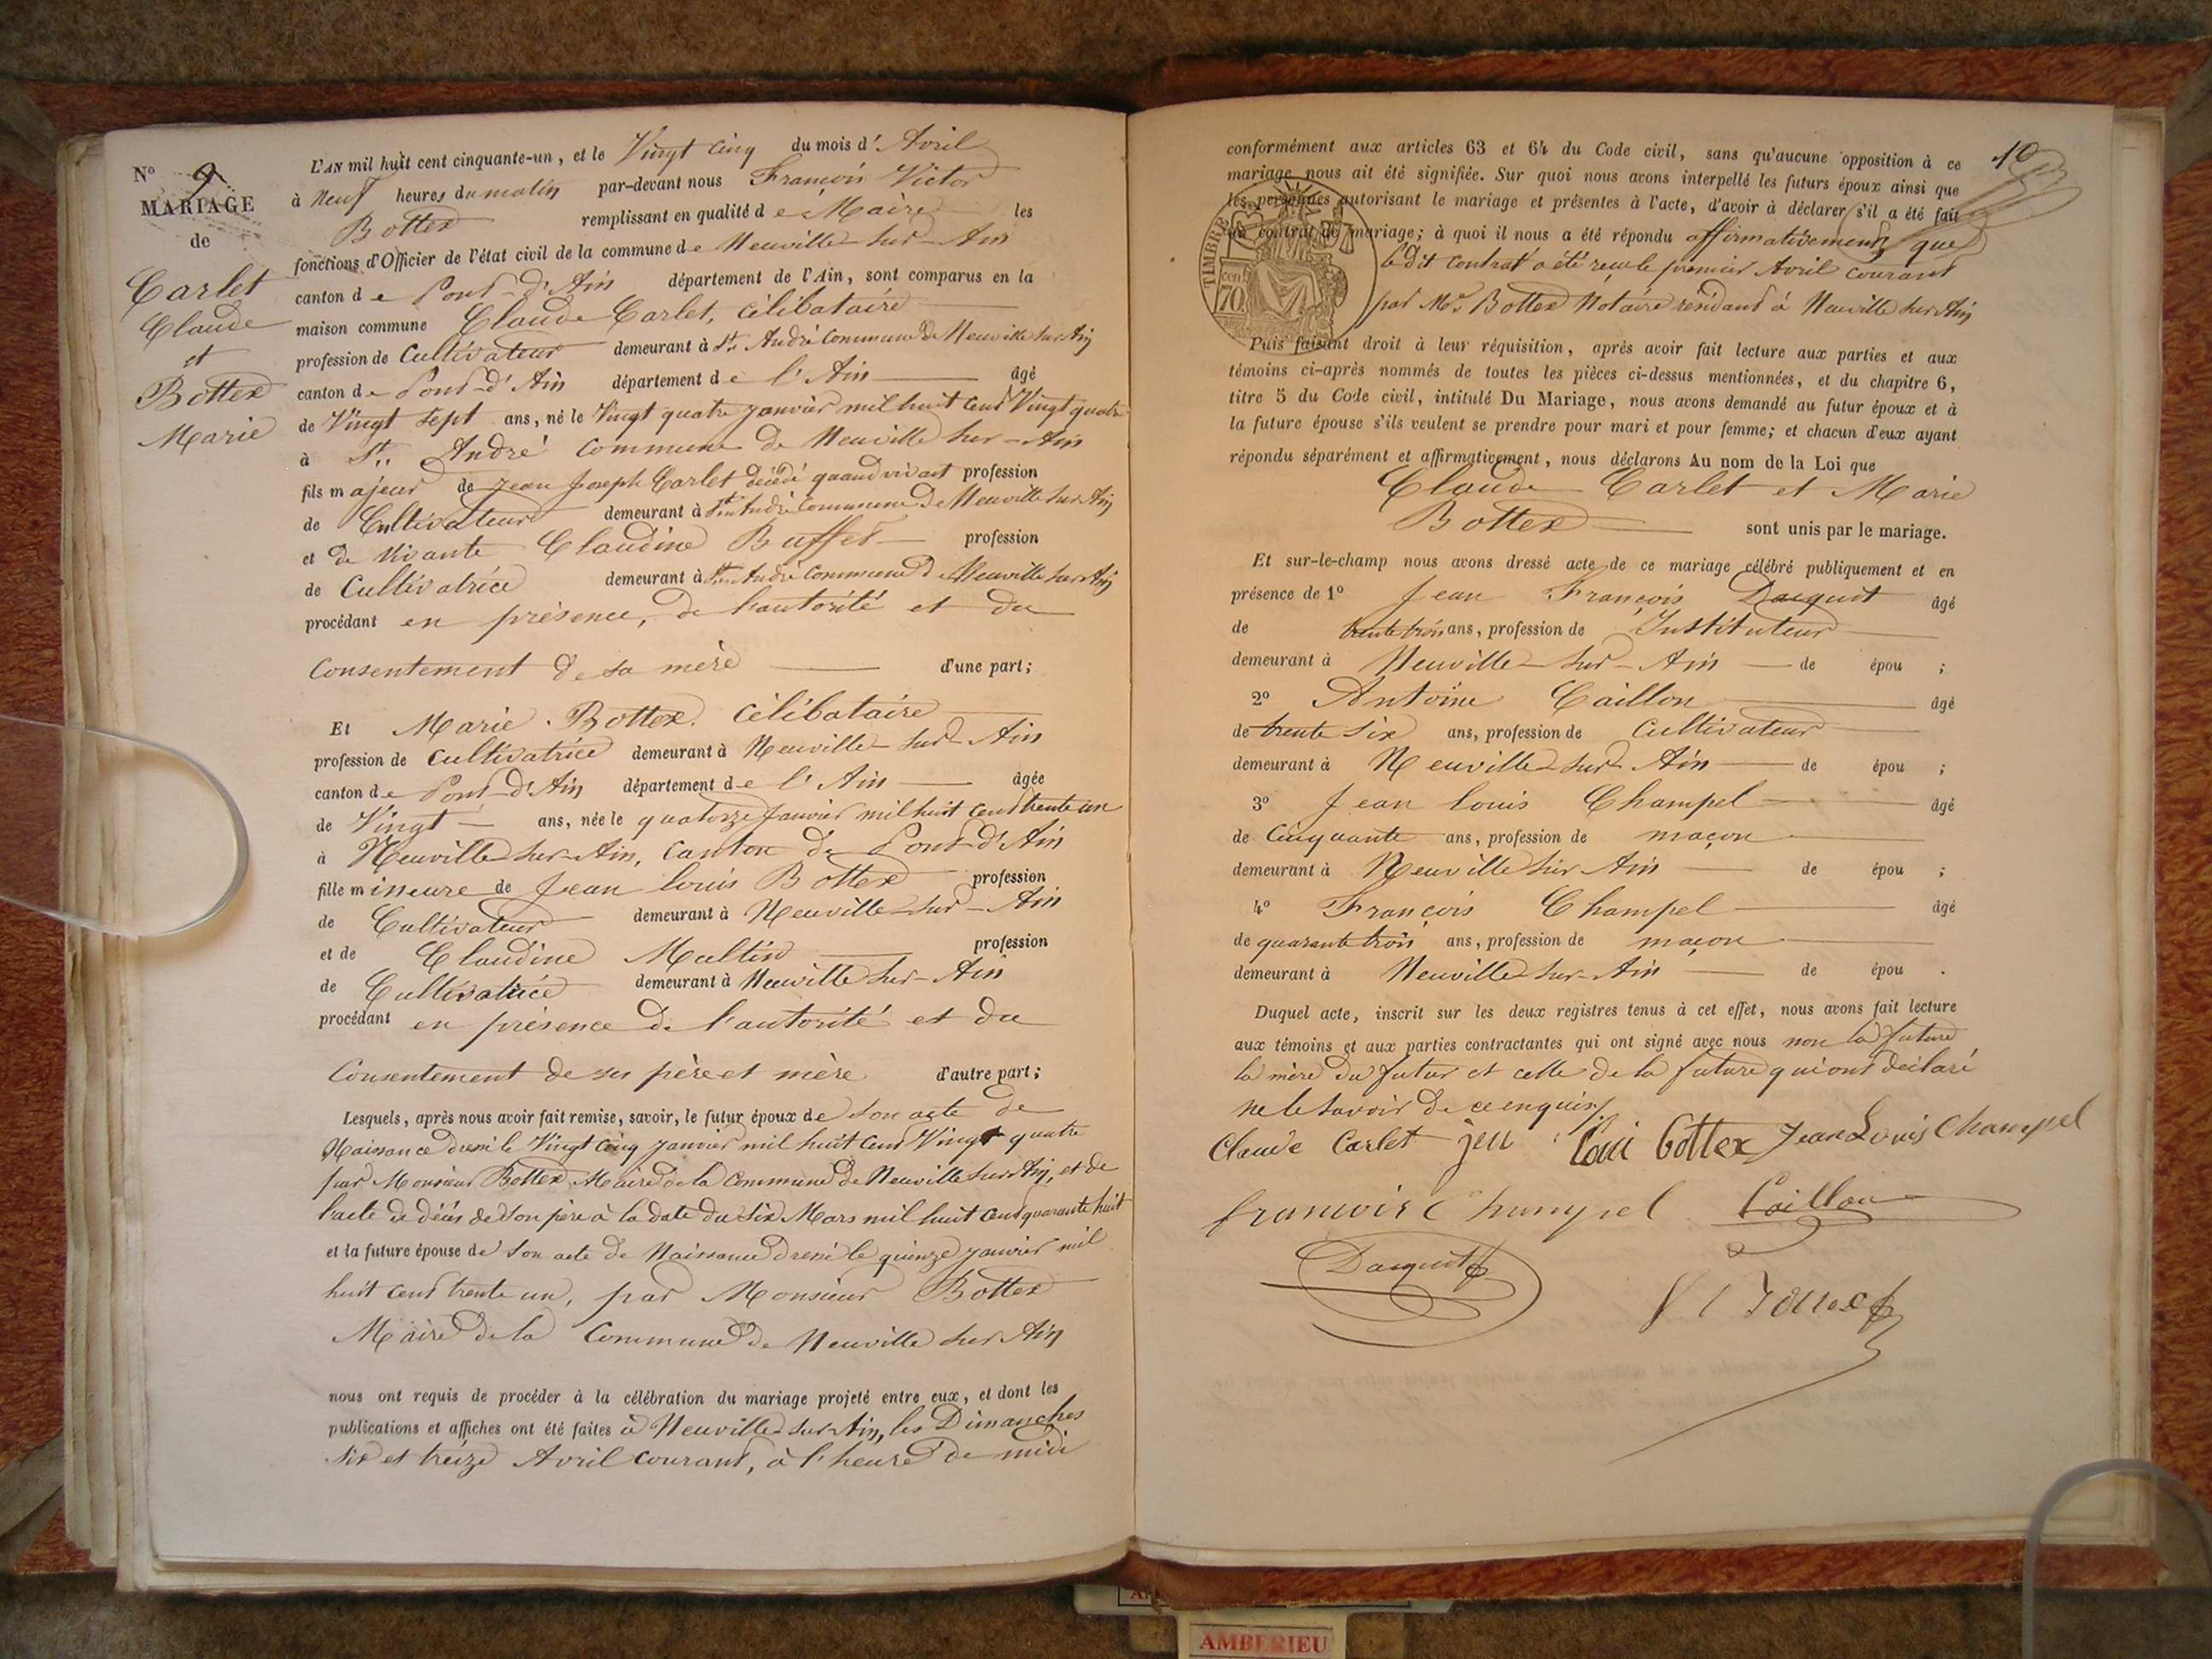 N.º 9
MARIAGE
de
Carlet
Claude
et
Bottex
Marie
L'AN mil huit cent cinquante-un, et le Vingt cinq du mois d'Avril
à Neuf heures du matin par-devant nous François Victor
Bottex remplissant en qualité de Maire les
fonctions d'Officier de l'état civil de la commune de Neuville-sur-Ain
canton de Pont-d'Ain département de l'Ain, sont comparus en la
maison commune Claude Carlet, célibataire
profession de Cultivateur demeurant à St. André Commune de Neuville sur Ain
canton de Pont-d'Ain département de l'Ain âgé
de Vingt sept ans, né le Vingt quatre janvier mil huit cent Vingt quatre
à St. André Commune de Neuville sur-Ain
fils majeur de Jean Joseph Carlet décédé quand vivait profession
de Cultivateur demeurant à St. André Commune de Neuville sur Ain
et de vivante Claudine Buffet profession
de Cultivatrice demeurant à St. André Commune de Neuville sur Ain
procédant en présence, de l'autorité et du
Consentement de sa mère d'une part;
Et Marie Bottex. célibataire
profession de cultivatrice demeurant à Neuville-sur-Ain
canton de Pont-d'Ain département de l'Ain âgée
de Vingt ans, née le quatorze Janvier mil huit cent trente un
à Neuville sur-Ain, canton de Pont-d'Ain
fille mineure de Jean louis Bottex profession
de Cultivateur demeurant à Neuville-sur-Ain
et de Claudine Multin profession
de Cultivatrice demeurant à Neuville sur-Ain
procédant en présence de l'autorité et du
Consentement de ses père et mère d'autre part;
Lesquels, après nous avoir fait remise, savoir, le futur époux de son acte de
Naissance dressé le Vingt cinq janvier mil huit cent Vingt quatre
par Monsieur Bottex Maire de la Commune de Neuville sur Ain, et de
l'acte de décès de son père à la date du six Mars mil huit cent quarante huit
et la future épouse de son acte de Naissance dressé le quinze janvier mil
huit cent trente un, par Monsieur Bottex
Maire de la Commune de Neuville sur Ain
nous ont requis de procéder à la célébration du mariage projeté entre eux, et dont les
publications et affiches ont été faites à Neuville sur Ain, les Dimanches
six et treize Avril courant, à l'heure de midi
10
conformément aux articles 63 et 64 du Code civil, sans qu'aucune opposition à ce
mariage nous ait été signifiée. Sur quoi nous avons interpellé les futurs époux ainsi que
les personnes autorisant le mariage et présentes à l'acte, d'avoir à déclarer s'il a été fait
un contrat de mariage; à quoi il nous a été répondu affirmativement que
ledit contrat a été reçu le premier Avril courant
par Me. Bottex Notaire résidant à Neuville sur Ain
TIMBRE
70
Puis faisant droit à leur réquisition, après avoir fait lecture aux parties et aux
témoins ci-après nommés de toutes les pièces ci-dessus mentionnées, et du chapitre 6,
titre 5 du Code civil, intitulé Du Mariage, nous avons demandé au futur époux et à
la future épouse s'ils veulent se prendre pour mari et pour femme; et chacun d'eux ayant
répondu séparément et affirmativement, nous déclarons Au nom de la Loi que
Claude Carlet et Marie
Bottex sont unis par le mariage.
Et sur-le-champ nous avons dressé acte de ce mariage célébré publiquement et en
présence de 1º Jean François Dacquit âgé
de trente trois ans, profession de Instituteur
demeurant à Neuville-sur-Ain de épou ;
2º Antoine Caillon âgé
de trente six ans, profession de Cultivateur
demeurant à Neuville sur Ain de épou ;
3º Jean louis Champel âgé
de Cinquante ans, profession de maçon
demeurant à Neuville sur Ain de épou ;
4º François Champel âgé
de quarante trois ans, profession de maçon
demeurant à Neuville sur-Ain de épou .
Duquel acte, inscrit sur les deux registres tenus à cet effet, nous avons fait lecture
aux témoins et aux parties contractantes qui ont signé avec nous non la future
la mère du futur et celle de la future qui ont déclaré
ne le savoir de ce enquis
Claude Carlet jeu Loui bottex Jean Louis Champel
francois Champel Caillon
Dacquit
AMBERIEU